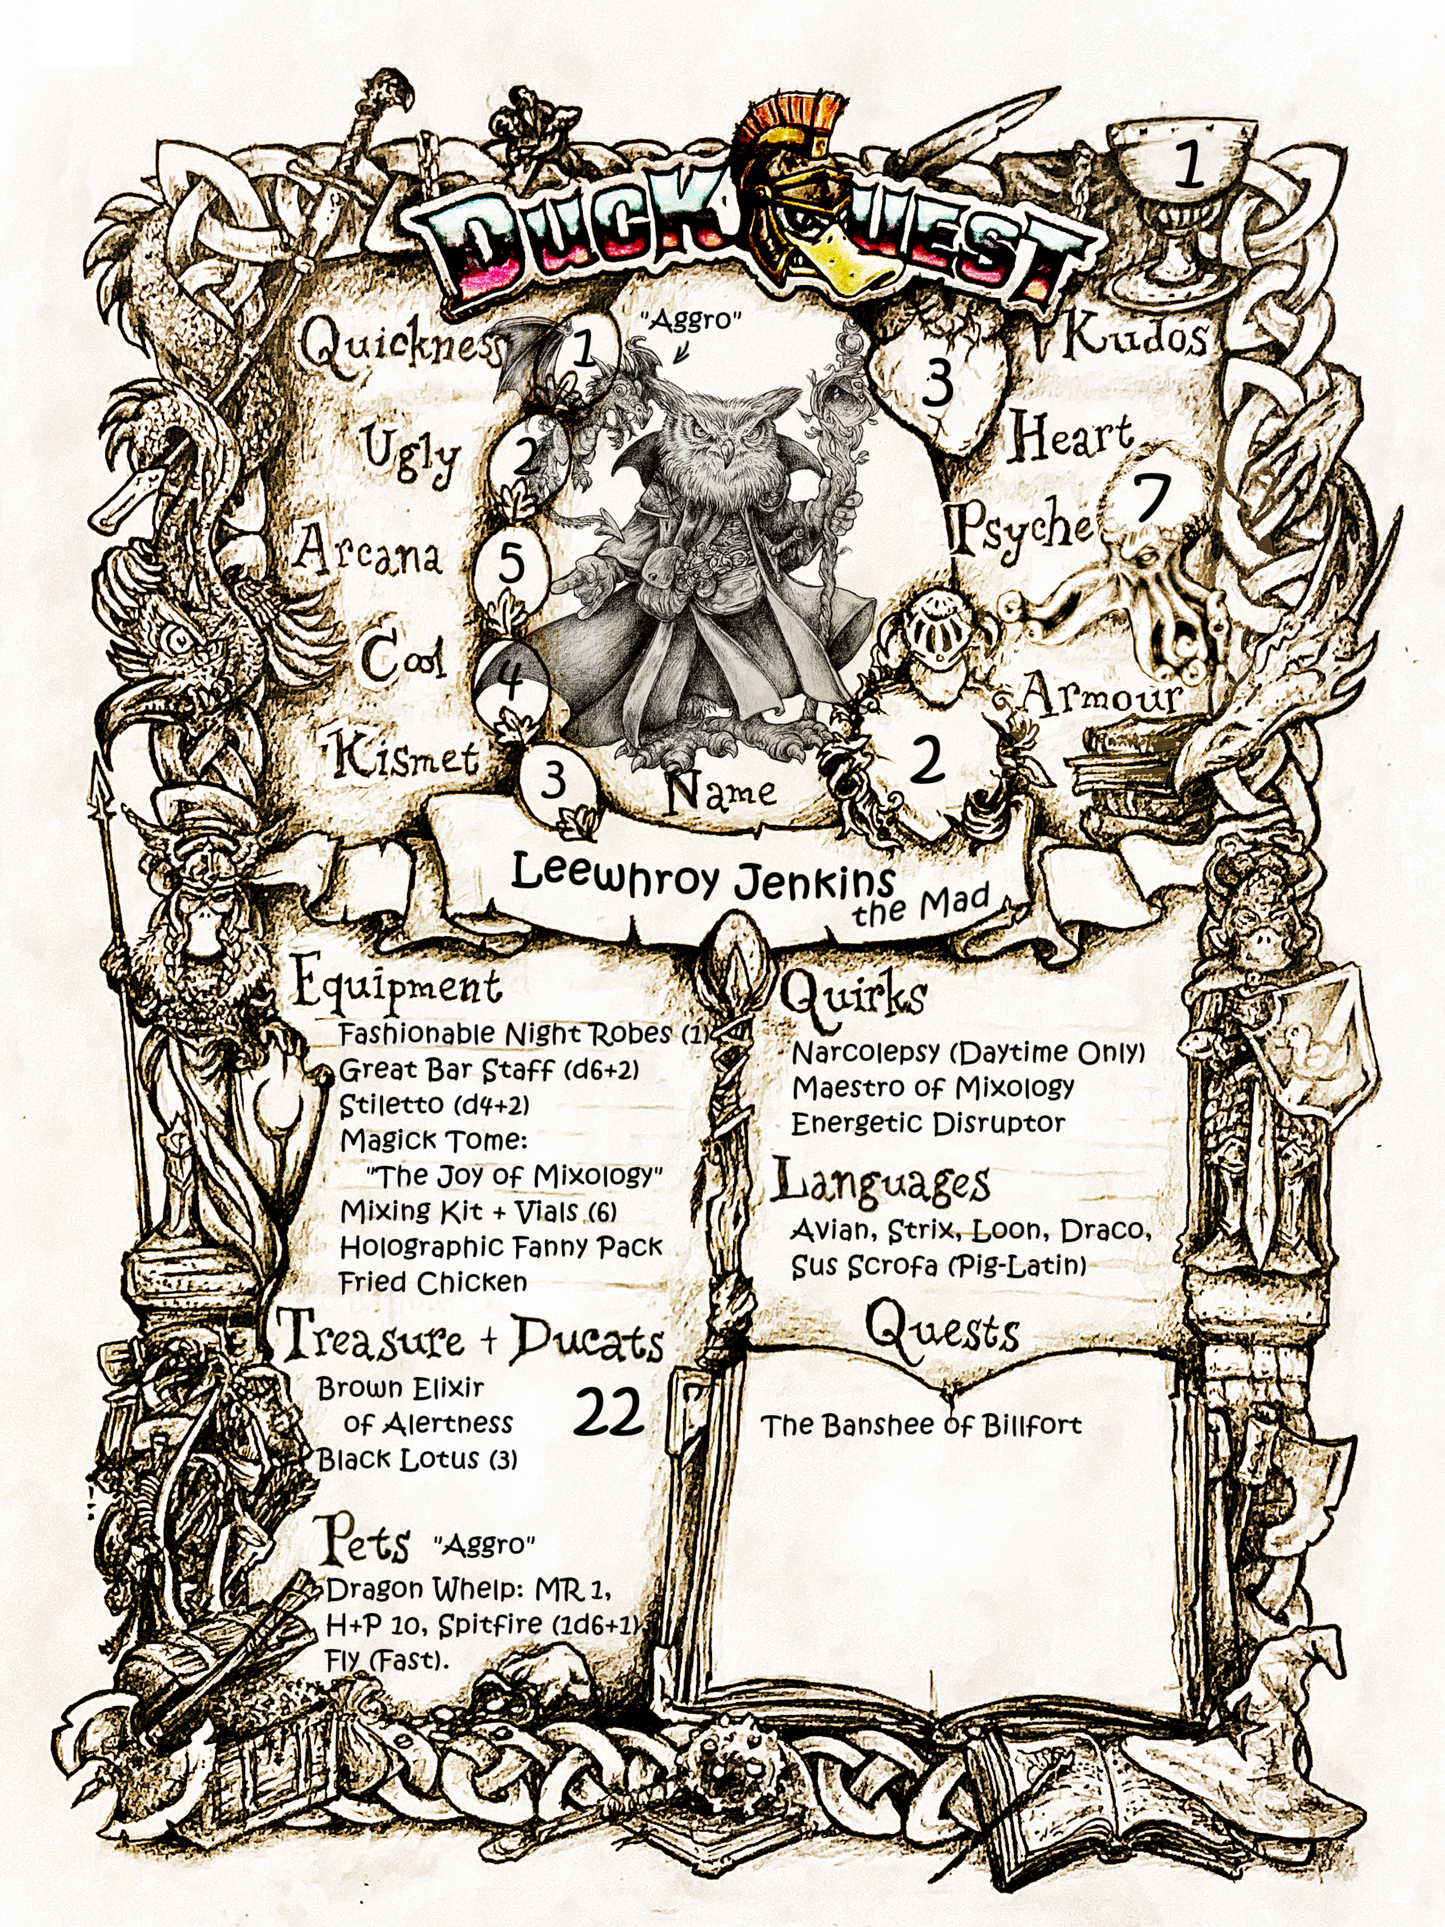 DUCKQUEST
1
Quickness
1
"Aggro"
3
Kudos
Ugly
2
Heart
Arcana
5
Psyche
7
Cool
4
Armour
2
Kismet
3
Name
Leewhroy Jenkins
the Mad
Equipment
Fashionable Night Robes (1)
Great Bar Staff (d6+2)
Stiletto (d4+2)
Magick Tome:
"The Joy of Mixology"
Mixing Kit + Vials (6)
Holographic Fanny Pack
Fried Chicken
Treasure + Ducats
Brown Elixir
of Alertness
22
Black Lotus (3)
Pets "Aggro"
Dragon Whelp: MR 1,
H+P 10, Spitfire (1d6+1),
Fly (Fast).
Quirks
Narcolepsy (Daytime Only)
Maestro of Mixology
Energetic Disruptor
Languages
Avian, Strix, Loon, Draco,
Sus Scrofa (Pig-Latin)
Quests
The Banshee of Billfort